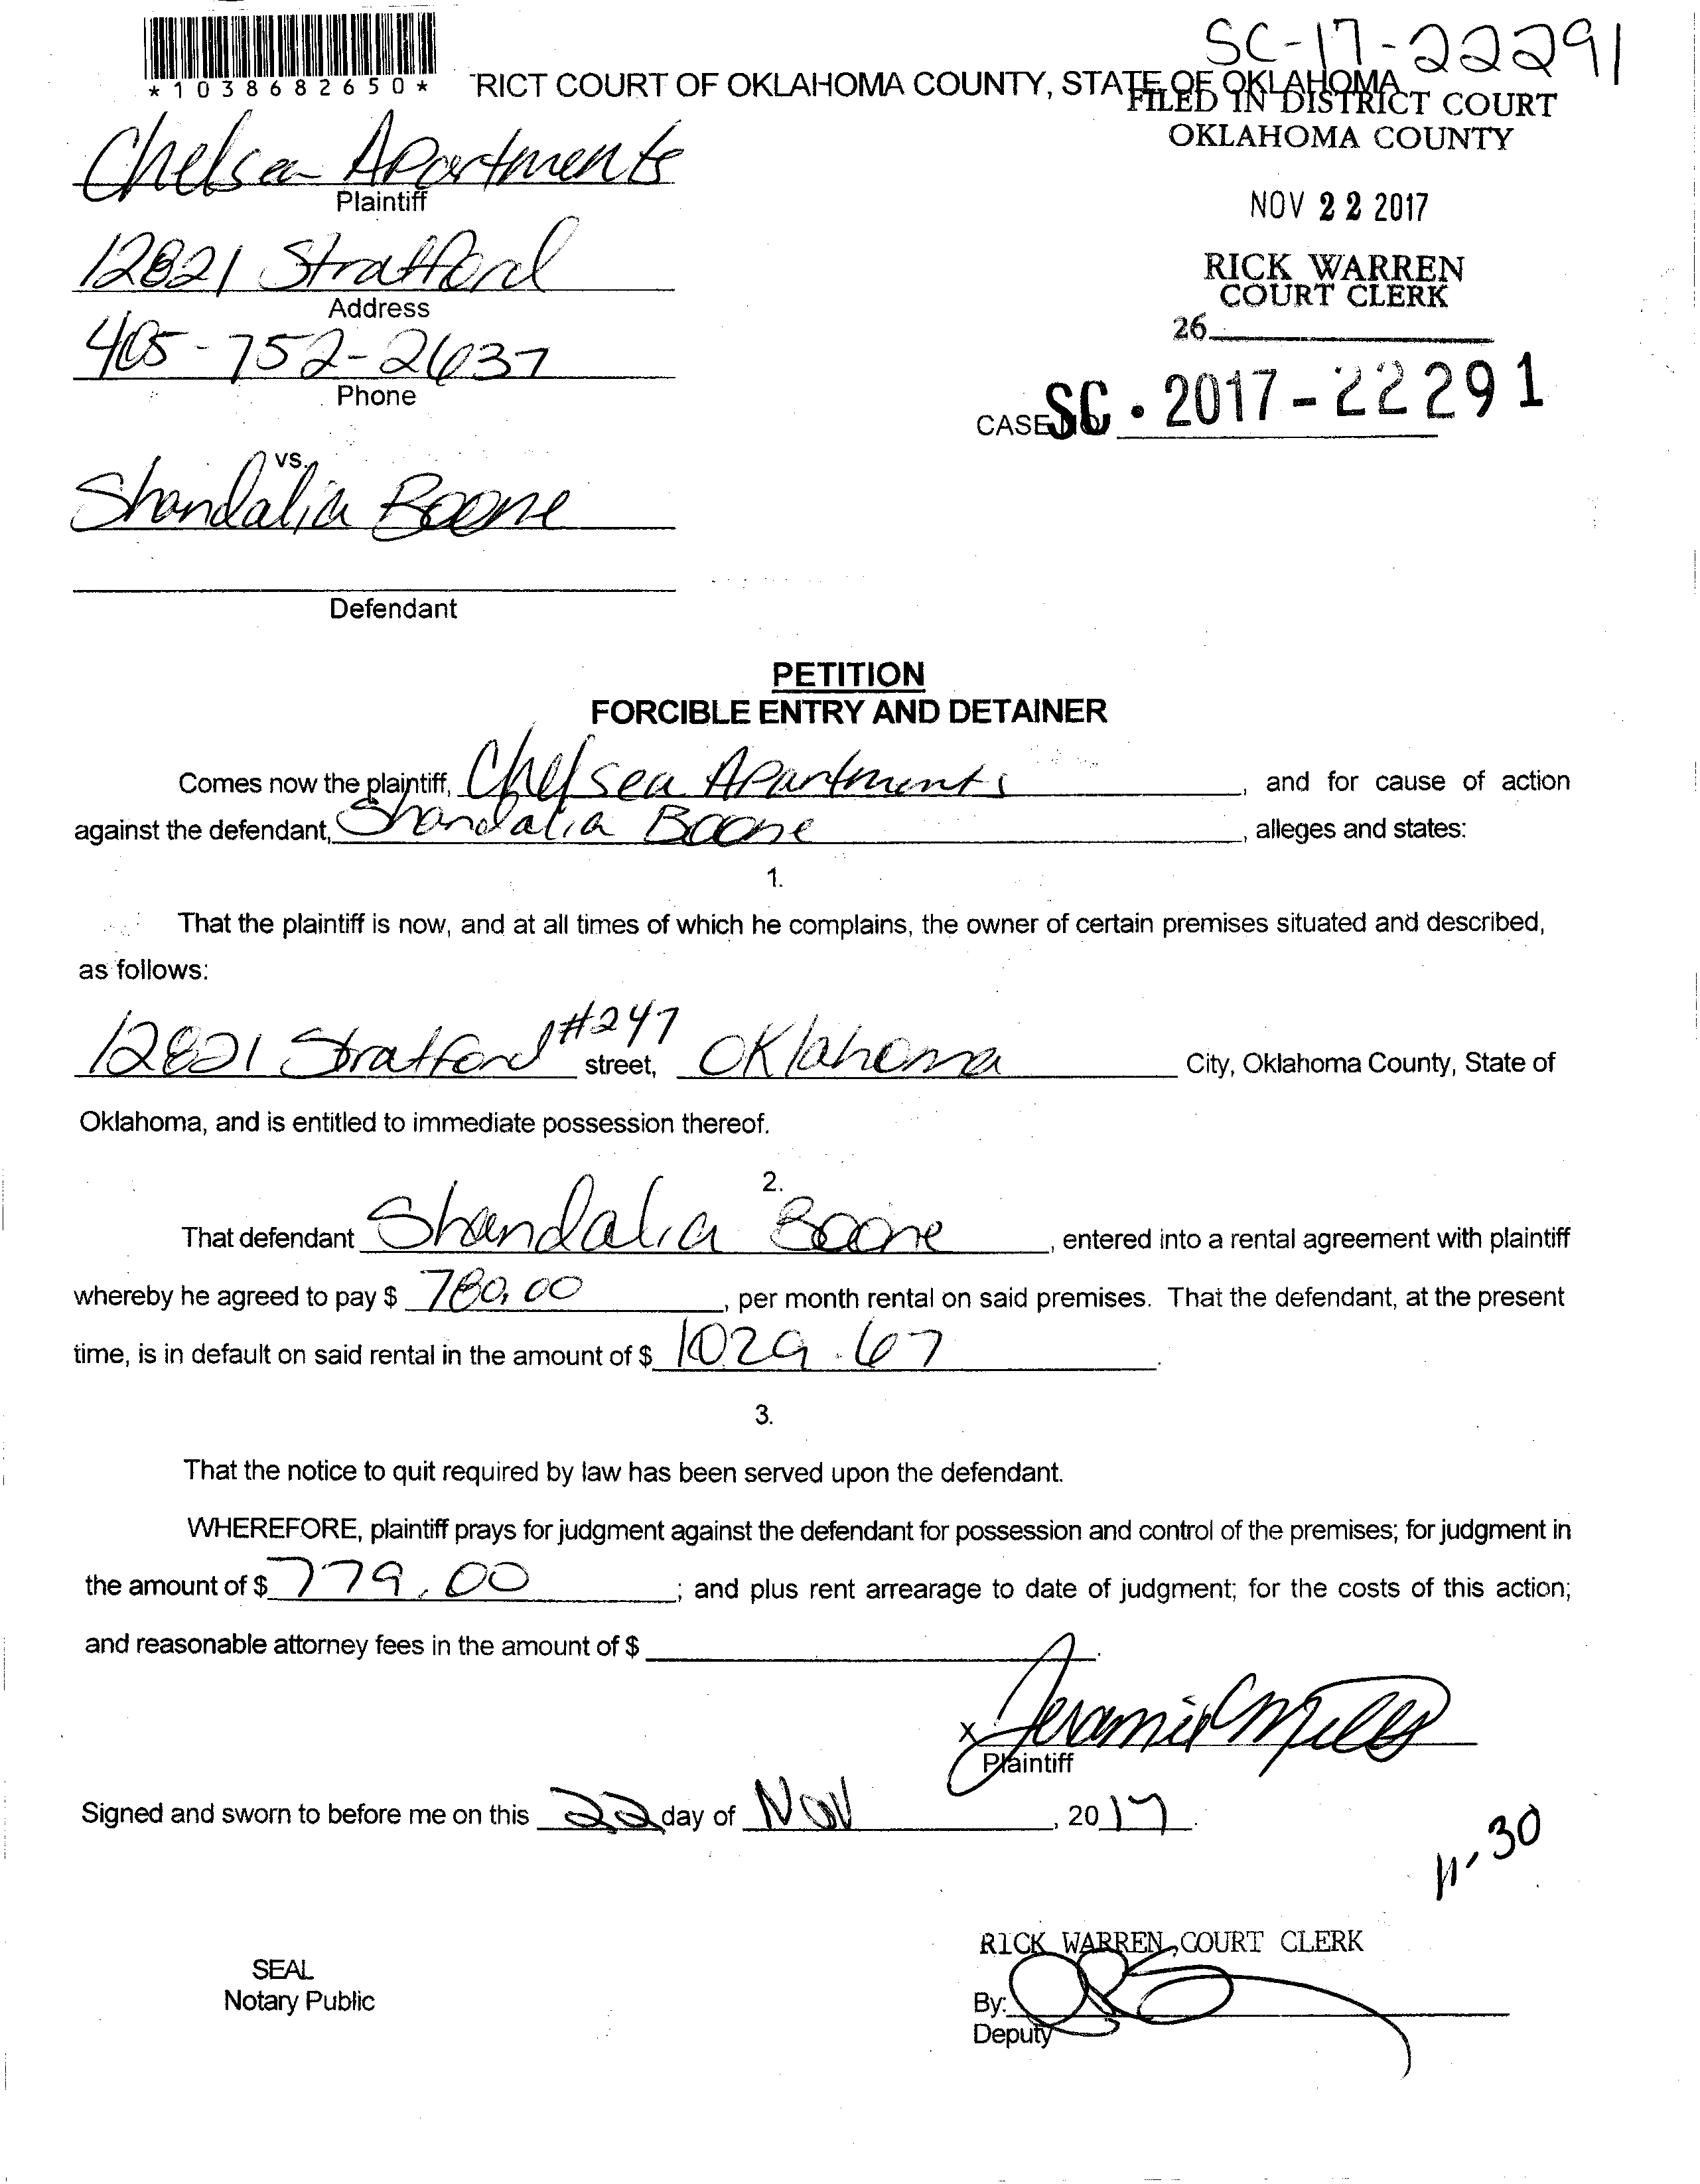 SC-17-22291
*1038682650*
RICT COURT OF OKLAHOMA COUNTY, STATE OF OKLAHOMA
FILED IN DISTRICT COURT
OKLAHOMA COUNTY
Chelsea Apartments
Plaintiff
NOV 22 2017
12821 Stratford
Address
RICK WARREN
COURT CLERK
405-752-2637
Phone
26
CASE SC-2017-22291
vs.
Shandalia Boone
Defendant
PETITION
FORCIBLE ENTRY AND DETAINER
Comes now the plaintiff, Chelsea Apartments, and for cause of action
against the defendant, Shandalia Boone, alleges and states:
1.
That the plaintiff is now, and at all times of which he complains, the owner of certain premises situated and described,
as follows:
12821 Stratford #247 street, Oklahoma City, Oklahoma County, State of
Oklahoma, and is entitled to immediate possession thereof.
2.
That defendant Shandalia Boone, entered into a rental agreement with plaintiff
whereby he agreed to pay $ 780.00, per month rental on said premises. That the defendant, at the present
time, is in default on said rental in the amount of $ 1029.67.
3.
That the notice to quit required by law has been served upon the defendant.
WHEREFORE, plaintiff prays for judgment against the defendant for possession and control of the premises; for judgment in
the amount of $ 779.00; and plus rent arrearage to date of judgment; for the costs of this action;
and reasonable attorney fees in the amount of $ .
x
Plaintiff
Signed and sworn to before me on this 22 day of Nov, 2017.
11-30
RICK WARREN, COURT CLERK
SEAL
Notary Public
By:
Deputy